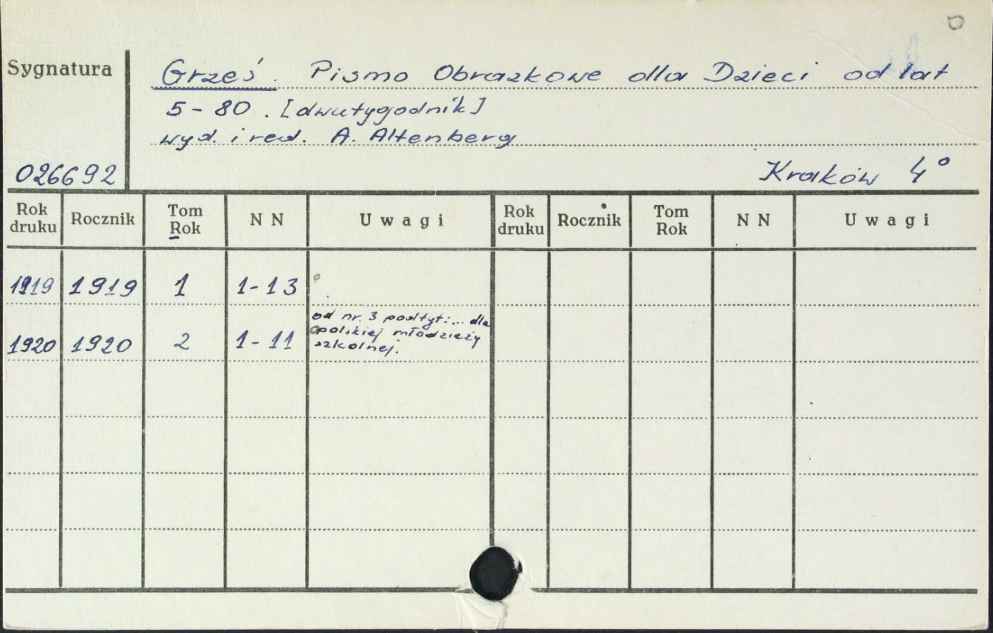 Sygnatura
Grześ. Pismo Obrazkowe dla Dzieci od lat
5 - 80. [dwutygodnik]
wyd. i red. A. Altenberg
026692
Kraków 4°
Rok druku Rocznik Tom Rok N N Uwagi Rok druku Rocznik Tom Rok N N Uwagi
1919 1919 1 1-13
od nr. 3 podtyt: ... dla
1920 1920 2 1-11 polskiej młodzieży
szkolnej.